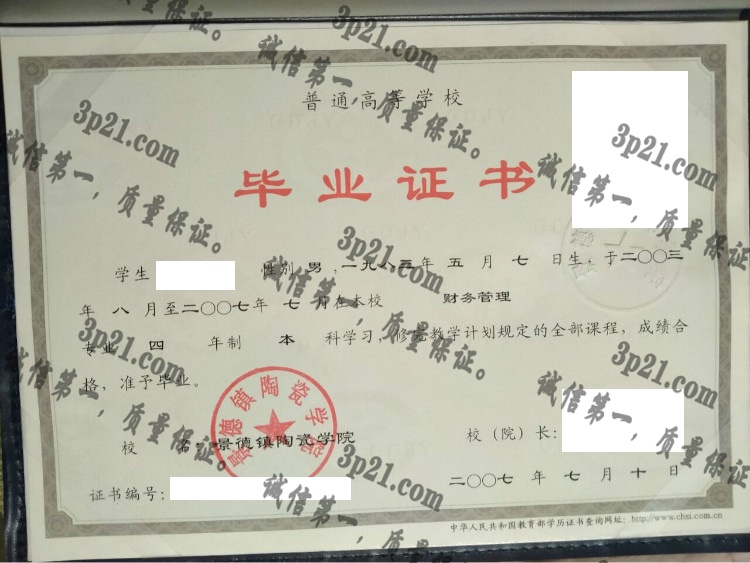 普通高等学校
毕业证书
学生 性别 男，一九八三年 五 月 七 日生，于二〇〇三
年 八 月至二〇〇七年 七 月在本校 财务管理
专业 四 年制 本 科学习，修完教学计划规定的全部课程，成绩合
格，准予毕业。
景德镇陶瓷学院
校 名：景德镇陶瓷学院 校（院）长：
二〇〇七 年 七 月 十 日
证书编号：
中华人民共和国教育部学历证书查询网址：http://www.chsi.com.cn
3p21.com
诚信第一，质量保证。
3p21.com
诚信第一，质量保证。
3p21.com
诚信第一，质量保证。
3p21.com
诚信第一，质量保证。
3p21.com
诚信第一，质量保证。
3p21.com
诚信第一，质量保证。
3p21.com
诚信第一，质量保证。
3p21.com
诚信第一，质量保证。